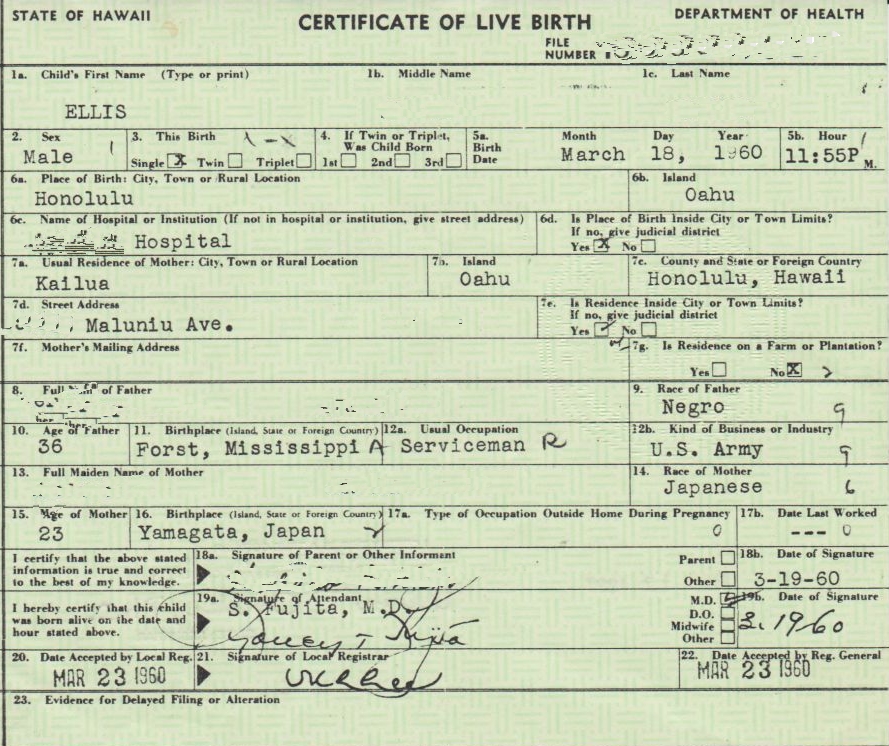 STATE OF HAWAII
CERTIFICATE OF LIVE BIRTH
DEPARTMENT OF HEALTH
FILE
NUMBER
1a. Child's First Name (Type or print)
1b. Middle Name
1c. Last Name
ELLIS
2. Sex
Male
3. This Birth
Single X Twin Triplet
4. If Twin or Triplet,
Was Child Born
1st 2nd 3rd
5a.
Birth
Date
Month Day Year
March 18, 1960
5b. Hour
11:55P M.
6a. Place of Birth: City, Town or Rural Location
Honolulu
6b. Island
Oahu
6c. Name of Hospital or Institution (If not in hospital or institution, give street address)
Hospital
6d. Is Place of Birth Inside City or Town Limits?
If no, give judicial district
Yes X No
7a. Usual Residence of Mother: City, Town or Rural Location
Kailua
7b. Island
Oahu
7c. County and State or Foreign Country
Honolulu, Hawaii
7d. Street Address
Maluniu Ave.
7e. Is Residence Inside City or Town Limits?
If no, give judicial district
Yes No
7f. Mother's Mailing Address
7g. Is Residence on a Farm or Plantation?
Yes No X
8. Full of Father
9. Race of Father
Negro 9
10. Age of Father
36
11. Birthplace (Island, State or Foreign Country)
Forst, Mississippi A
12a. Usual Occupation
Serviceman R
12b. Kind of Business or Industry
U.S. Army 9
13. Full Maiden Name of Mother
14. Race of Mother
Japanese 6
15. Age of Mother
23
16. Birthplace (Island, State or Foreign Country)
Yamagata, Japan
17a. Type of Occupation Outside Home During Pregnancy
0
17b. Date Last Worked
--- 0
I certify that the above stated
information is true and correct
to the best of my knowledge.
18a. Signature of Parent or Other Informent
Parent
Other
18b. Date of Signature
3-19-60
I hereby certify that this child
was born alive on the date and
hour stated above.
19a. Signature of Attendant
S. Fujita, M.D.
M.D.
D.O.
Midwife
Other
19b. Date of Signature
3.19-60
20. Date Accepted by Local Reg.
MAR 23 1960
21. Signature of Local Registrar
22. Date Accepted by Reg. General
MAR 23 1960
23. Evidence for Delayed Filing or Alteration